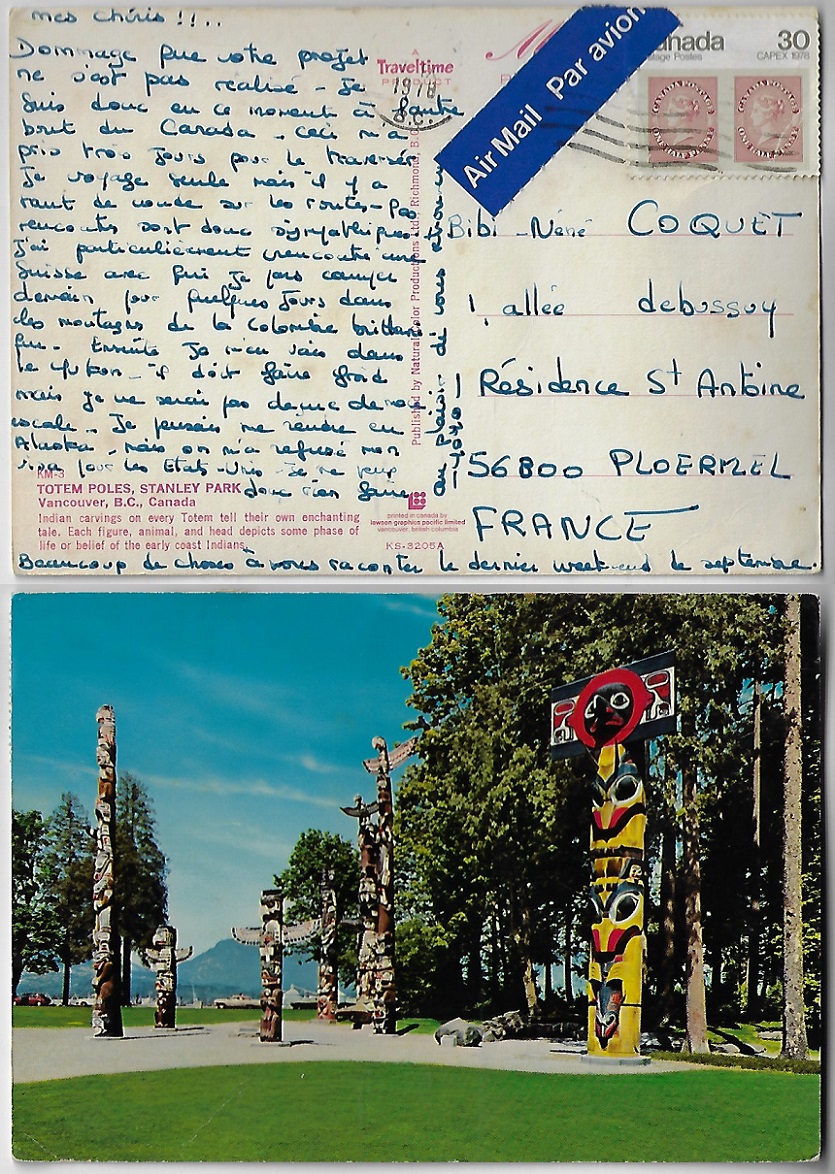 mes chéris !!..
Dommage que votre projet
ne s'est pas realisé - Je
suis donc en ce moment à l'autre
bout du Canada - ceci m'a
pris trois jours pour la traversée
Je voyage seule mais il y a
tant de monde sur les routes - les
rencontres sont donc sympathiques.
J'ai particulièrement rencontré une
Suisse avec qui je pars camper
demain pour quelques jours dans
les montagnes de la Colombie brittani
que - Ensuite Je m'en vais dans
le Yukon - il doit faire froid
mais je ne serai pas
Je pensais me rendre en
Alaska - mais on m'a refusé mon
visa pour les Etats-Unis - Je ne puis
donc rien faire
Beaucoup de choses à vous raconter le dernier week-end de septembre.
au plaisir de vous
KM-3
TOTEM POLES, STANLEY PARK
Vancouver, B.C., Canada
Indian carvings on every Totem tell their own enchanting
tale. Each figure, animal, and head depicts some phase of
life or belief of the early coast Indians.
A
Traveltime
PRODUCT
1978
Published by Natural Color Productions Ltd., Richmond, B.C.
printed in canada by
lawson graphics pacific limited
vancouver, british columbia
KS-3205A
Air Mail Par avion
Canada 30
Postage Postes CAPEX 1978
CANADA POSTAGE
ONE HALF PENNY
CANADA POSTAGE
ONE HALF PENNY
Bibi - Néné COQUET
1, allée debussuy
Résidence St Antoine
56800 PLOERMEL
FRANCE